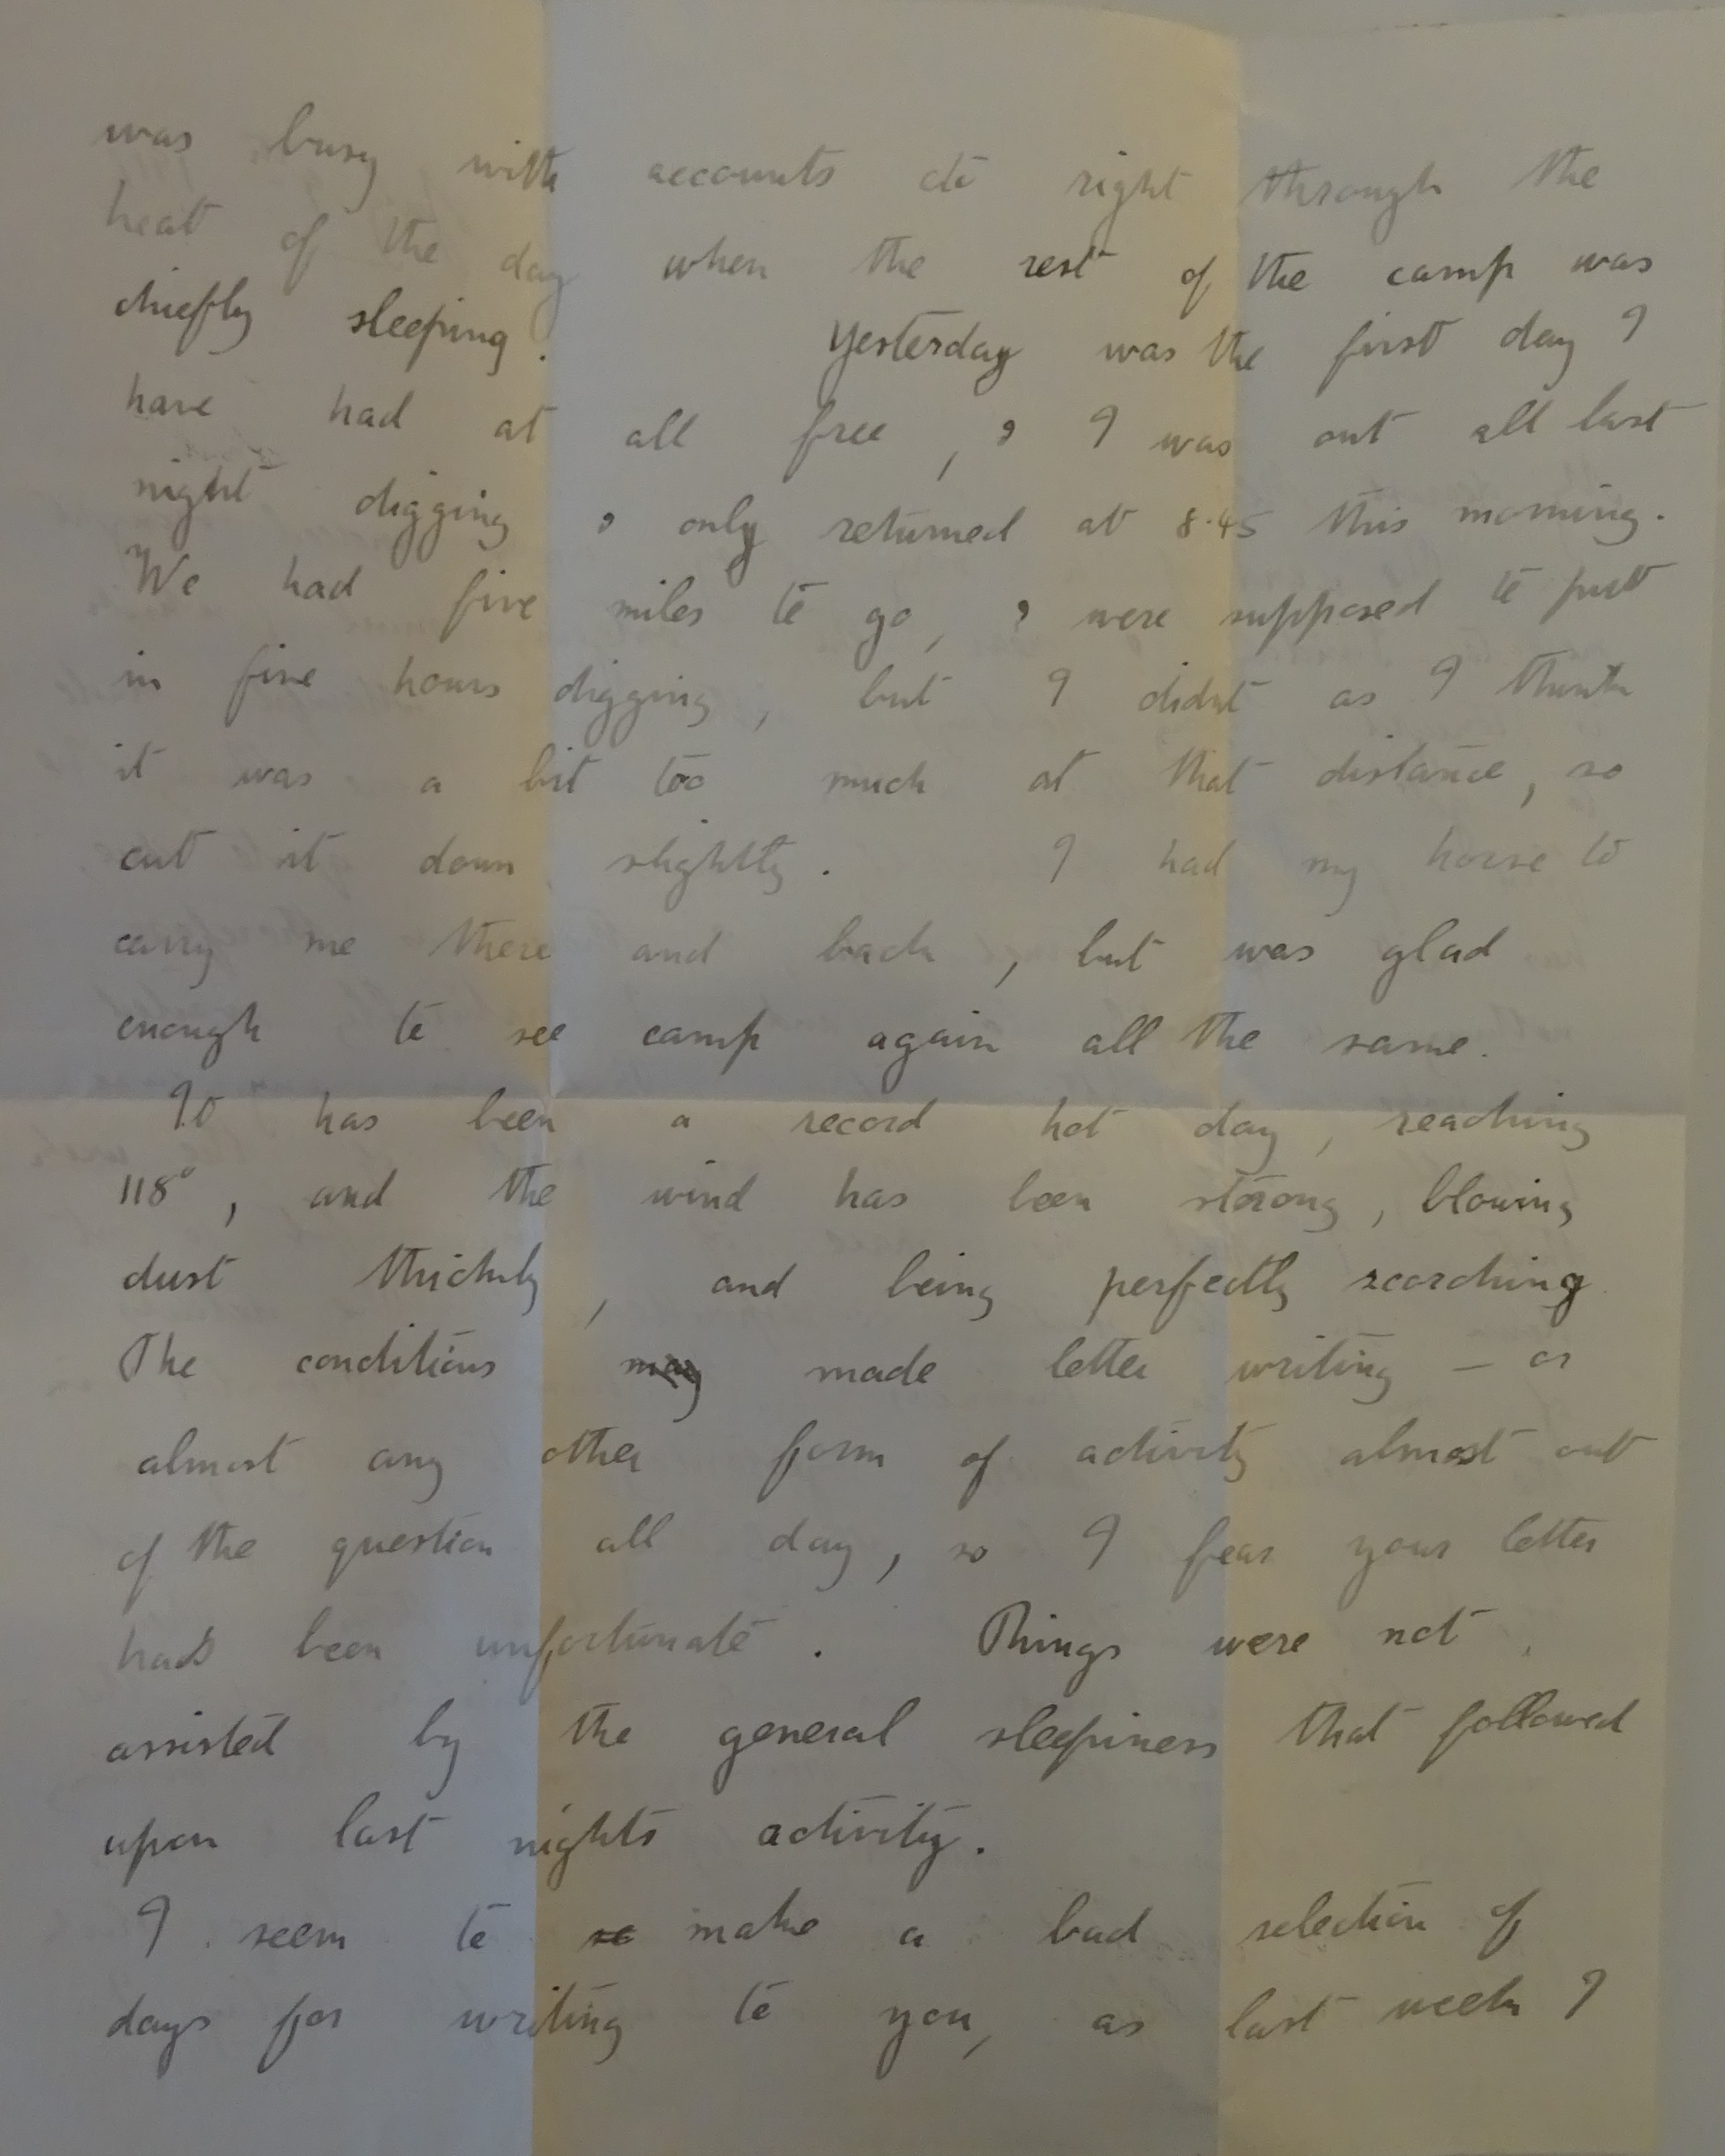 was busy with accounts etc right through the
heat of the day when the rest of the camp was
chiefly sleeping. Yesterday was the first day I
have had at all free, & I was out all last
night digging & only returned at 8.45 this morning.
We had five miles to go, & were supposed to put
in five hours digging, but I didnt as I think
it was a bit too much at that distance, so
cut it down slightly. I had my horse to
carry me there and back, but was glad
enough to see camp again all the same.
It has been a record hot day, reaching
118°, and the wind has been strong, blowing
dust thickly, and being perfectly scorching
The conditions may made letter writing — or
almost any other form of activity almost out
of the question all day, so I fear your letter
has been unfortunate. Things were not
assisted by the general sleepiness that followed
upon last nights activity.
I seem to se make a bad selection of
days for writing to you, as last week I